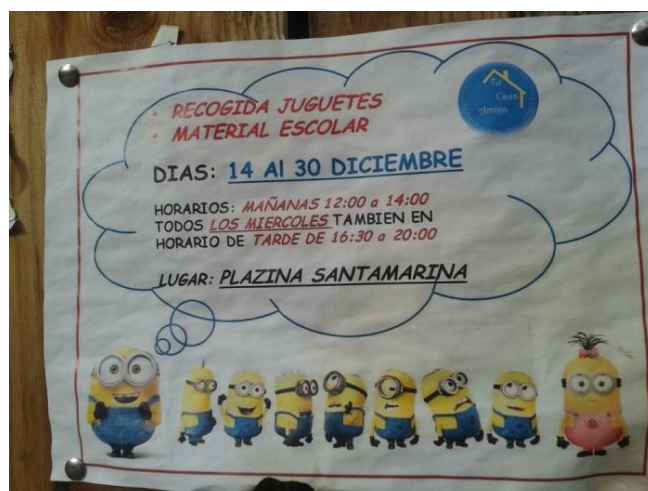 • RECOGIDA JUGUETES
• MATERIAL ESCOLAR
Tu
Casa
Amiga
DIAS: 14 Al 30 DICIEMBRE
HORARIOS: MAÑANAS 12:00 a 14:00
TODOS LOS MIERCOLES TAMBIEN EN
HORARIO DE TARDE DE 16:30 a 20:00
LUGAR: PLAZINA SANTAMARINA